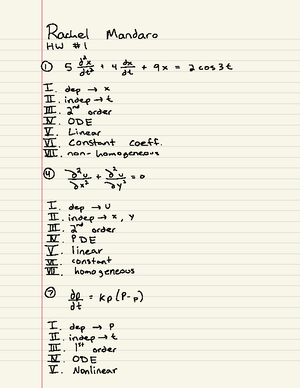 Rachel Mandaro
HW #1
① 5 d²x/dt² + 4 dx/dt + 9x = 2 cos 3t
I. dep → x
II. indep → t
III. 2nd order
IV. ODE
V. Linear
VI. Constant coeff.
VII. non-homogeneous
④ ∂²u/∂x² + ∂²u/∂y² = 0
I. dep → U
II. indep → x, y
III. 2nd order
IV. PDE
V. linear
VI. constant
VII. homogeneous
⑦ dp/dt = kp(P-p)
I. dep → P
II. indep → t
III. 1st order
IV. ODE
V. Nonlinear